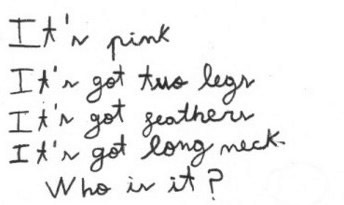 It's pink
It's got two legs
It's got feathers
It's got long neck.
Who is it?